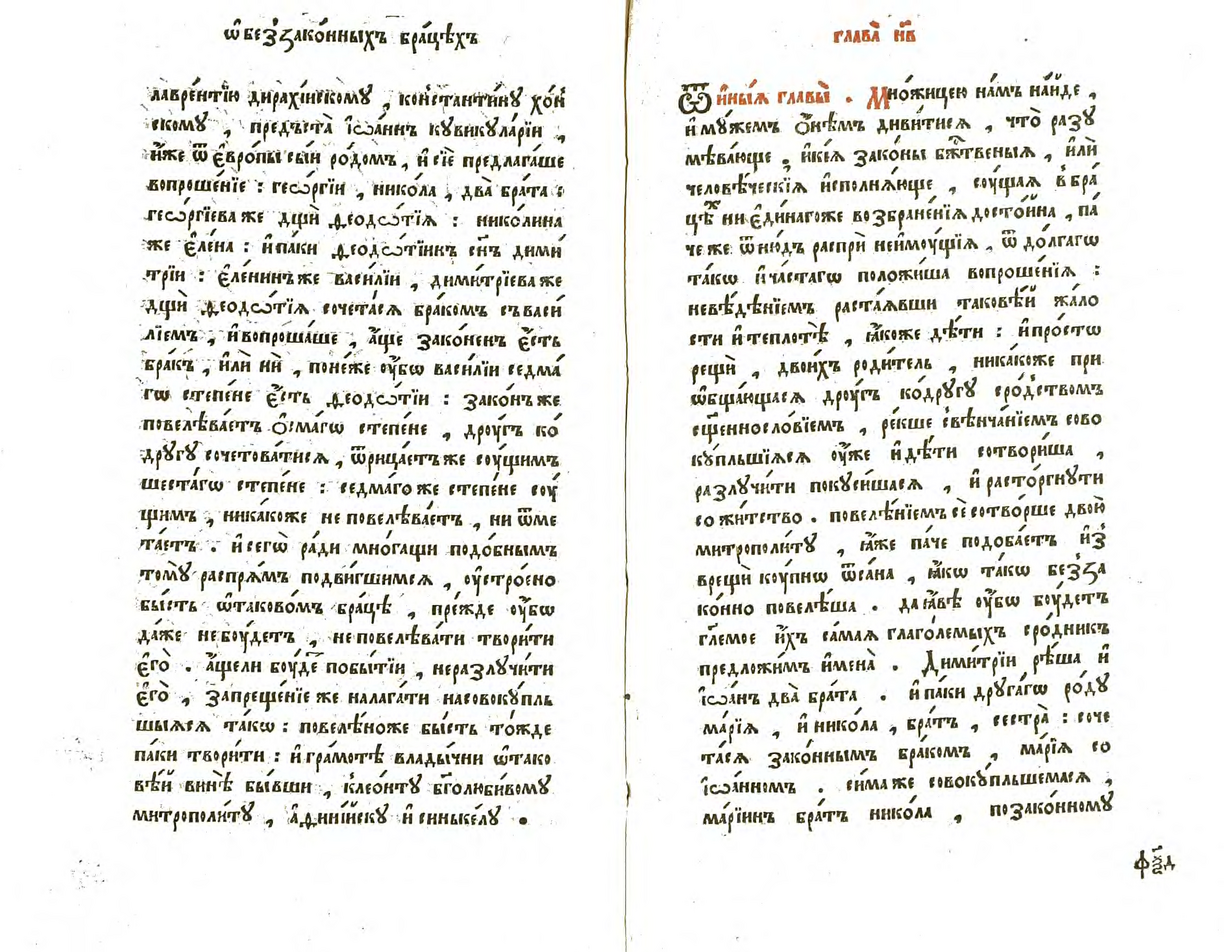 ѡ҆ без̾зако́нныхъ бра́цѣхъ
лавре́нтїю дирахі́искому , ко́нстанти́нꙋ хо́н
скомꙋ , предъста̀ і҆ѡа́ннъ кꙋвикꙋла́рїи ,
и҆́же ѿ є҆vрѡ́пы сы́и ро́домъ , и҆ сїѐ предлага́ше
вопроше́нїе : гео́ргїи , нико́ла , два̀ бра́та :
геѡ́ргїева же дщѝ ѳеодѡ́тїѧ : нико́лина
же є҆ле́на : и҆ па́ки ѳеодѡ́тїинъ сн҃ъ дими́
трїи : є҆ле́нинъ же васи́лїи , дими́трїева же
дщѝ ѳеодѡ́тїѧ сочета́сѧ бра́комъ съ васи́
лїемъ , и҆ вопроша́ше , а҆́ще зако́ненъ є҆́сть
бра́къ , и҆лѝ нѝ , поне́же ᲂу҆́бѡ васи́лїи седма́
гѡ степе́не є҆́сть ѳеодѡ́тїи : зако́нъ же
повелѣва́етъ ѻ҆сма́гѡ степе́не , дрꙋ́гъ ко
дрꙋ́гꙋ сочетова́тисѧ , ѿрица́етъ же сꙋ́щимъ
шеста́гѡ степе́не : седма́го же степе́не сꙋ́
щимъ , никако́же не повелѣва́етъ , ни ѿме
та́етъ . и҆ сегѡ̀ ра́ди мно́гащи подо́бнымъ
томꙋ̀ распрѧ́мъ подви́гшимсѧ , ᲂу҆стро́ено
бы́сть ѡ҆ таково́мъ бра́цѣ , пре́жде ᲂу҆́бѡ
да́же не бꙋ́детъ , не повелѣва́ти твори́ти
є҆го̀ . а҆́ще ли бꙋ́де по бытїѝ , неразлꙋчи́ти
є҆го̀ , запреще́нїе же налага́ти на совокꙋ́пль
шыѧсѧ та́кѡ : повелѣ́но же бы́сть то́жде
па́ки твори́ти : и҆ гра́мотѣ влады́чни ѡ҆ тако
вѣ́й винѣ̀ бы́вши , клео́нтꙋ бг҃олюби́вомꙋ
митрополи́тꙋ , а҆ѳині́йскꙋ и҆ синьке́лꙋ .
глава̀ н҃в
Ѿ и҆ны́ѧ главы̀ . Мно́жицею на́мъ на́йде ,
и҆ мꙋ́жемъ ѻ҆́нѣмъ диви́тисѧ , что̀ разꙋ
мѣва́юще , и҆ кі́ѧ зако́ны бж҃твеныѧ , и҆лѝ
человѣ́ческїѧ и҆сполнѧ́юще , сꙋ́щаѧ в̾ бра́
цѣ̑х ни є҆ди́нагоже возбране́нїѧ досто́йна , па́
че же ѿню́дъ ра́спри неимꙋ́щїѧ , ѿ до́лгагѡ
та́кѡ и҆ ча́стагѡ положи́ша вопроше́нїѧ :
невѣ́дѣнїемъ раста́ѧвши таковѣ́й жа́ло
сти и҆ теплотѣ̀ , ꙗ҆́коже дѣ́ти : и҆ про́стѡ
рещѝ , двои́хъ роди́тель , никако́же при
ѡ҆бща́ющасѧ дрꙋ́гъ ко дрꙋ́гꙋ сро́дствомъ
сщ҃еннослові́емъ , ре́кше с̾вѣнча́нїемъ сово
кꙋ́пльшїѧсѧ ᲂу҆́же и҆ дѣ́ти сотвори́ша ,
разлꙋчи́ти покꙋси́шасѧ , и҆ расто́ргнꙋти
сожи́тство . повелѣ́нїемъ сѐ сотво́рше двою̀
митрополи́тꙋ , ꙗ҆́же па́че подоба́етъ и҆з̾
врещѝ кꙋ́пнѡ ѿ са́на , ꙗ҆́кѡ та́кѡ без̾за
ко́нно повелѣ́ша . да ꙗ҆́вѣ ᲂу҆́бѡ бꙋ́детъ
гл҃емое и҆́хъ са́маѧ глаго́лемыхъ сро́дникъ
предложи́мъ и҆мена̀ . Дими́трїи рѣ́ша и҆
і҆ѡа́нъ два̀ бра́та . и҆ па́ки дрꙋга́гѡ ро́дꙋ
марі́ѧ , и҆ нико́ла , бра́тъ , сестра̀ : соче
та́сѧ зако́ннымъ бра́комъ , марі́ѧ со
і҆ѡа́нномъ . сима же совокꙋ́пльшемасѧ ,
марі́инъ бра́тъ нико́ла , по зако́нномꙋ